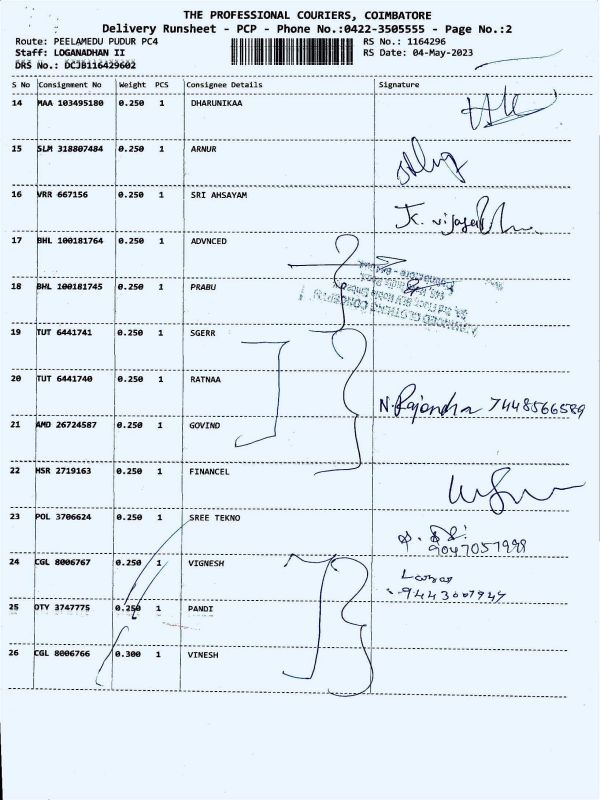 THE PROFESSIONAL COURIERS, COIMBATORE
Delivery Runsheet - PCP - Phone No.:0422-3505555 - Page No.:2
Route: PEELAMEDU PUDUR PC4 RS No.: 1164296
Staff: LOGANADHAN II RS Date: 04-May-2023
DRS No.: DCJB116429602
S No Consignment No Weight PCS Consignee Details Signature
14 MAA 103495180 0.250 1 DHARUNIKAA
15 SLM 318807484 0.250 1 ARNUR
16 VRR 667156 0.250 1 SRI AHSAYAM
17 BHL 100181764 0.250 1 ADVNCED
18 BHL 100181745 0.250 1 PRABU
19 TUT 6441741 0.250 1 SGERR
20 TUT 6441740 0.250 1 RATNAA N. Rajendra 7448566589
21 AMD 26724587 0.250 1 GOVIND
22 HSR 2719163 0.250 1 FINANCEL
23 POL 3706624 0.250 1 SREE TEKNO
9047057998
24 CGL 8006767 0.250 1 VIGNESH
9443007947
25 OTY 3747775 0.250 1 PANDI
26 CGL 8006766 0.300 1 VINESH